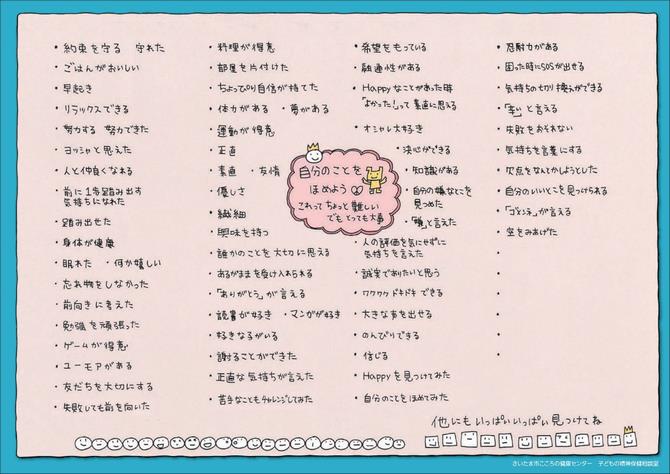 ・約束を守る 守れた
・ごはんがおいしい
・早起き
・リラックスできる
・努力する 努力できた
・ヨッシャと思えた
・人と仲良くなれる
・前に1歩踏み出す
気持ちになれた
・踏み出せた
・身体が健康
・眠れた ・何か嬉しい
・忘れ物をしなかった
・前向きに考えた
・勉強を頑張った
・ゲームが得意
・ユーモアがある
・友だちを大切にする
・失敗しても前を向いた
・料理が得意
・部屋を片付けた
・ちょっぴり自信が持てた
・体力がある ・夢がある
・運動が得意
・正直
・素直 ・友情
・優しさ
・繊細
・興味を持つ
・誰かのことを大切に思える
・あるがままを受け入れられる
・「ありがとう」が言える
・読書が好き ・マンガが好き
・好きな子がいる
・謝ることができた
・正直な気持ちが言えた
・苦手なこともチャレンジしてみた
自分のことを
ほめよう
これってちょっと難しい
でもとっても大事
・希望をもっている
・融通性がある
・Happyなことがあった時
「よかった!」って素直に思える
・オシャレ大好き
・決心ができる
・知識がある
・自分の嫌なとこを
見つめた
・「嫌」と言えた
・人の評価を気にせずに
気持ちを言えた
・誠実でありたいと思う
・ワクワクドキドキできる
・大きな声を出せる
・のんびりできる
・信じる
・Happyを見つけてみた
・自分のことをほめてみた
・忍耐力がある
・困った時にSOSが出せる
・気持ちの切り換えができる
・「辛い」と言える
・失敗をおそれない
・気持ちを言葉にする
・欠点をなんとかしようとした
・自分のいいとこを見つけられる
・「ゴメンネ」が言える
・空をみあげた
・
・
・
・
・
・
他にもいっぱいいっぱい見つけてね
さいたま市こころの健康センター 子どもの精神保健相談室